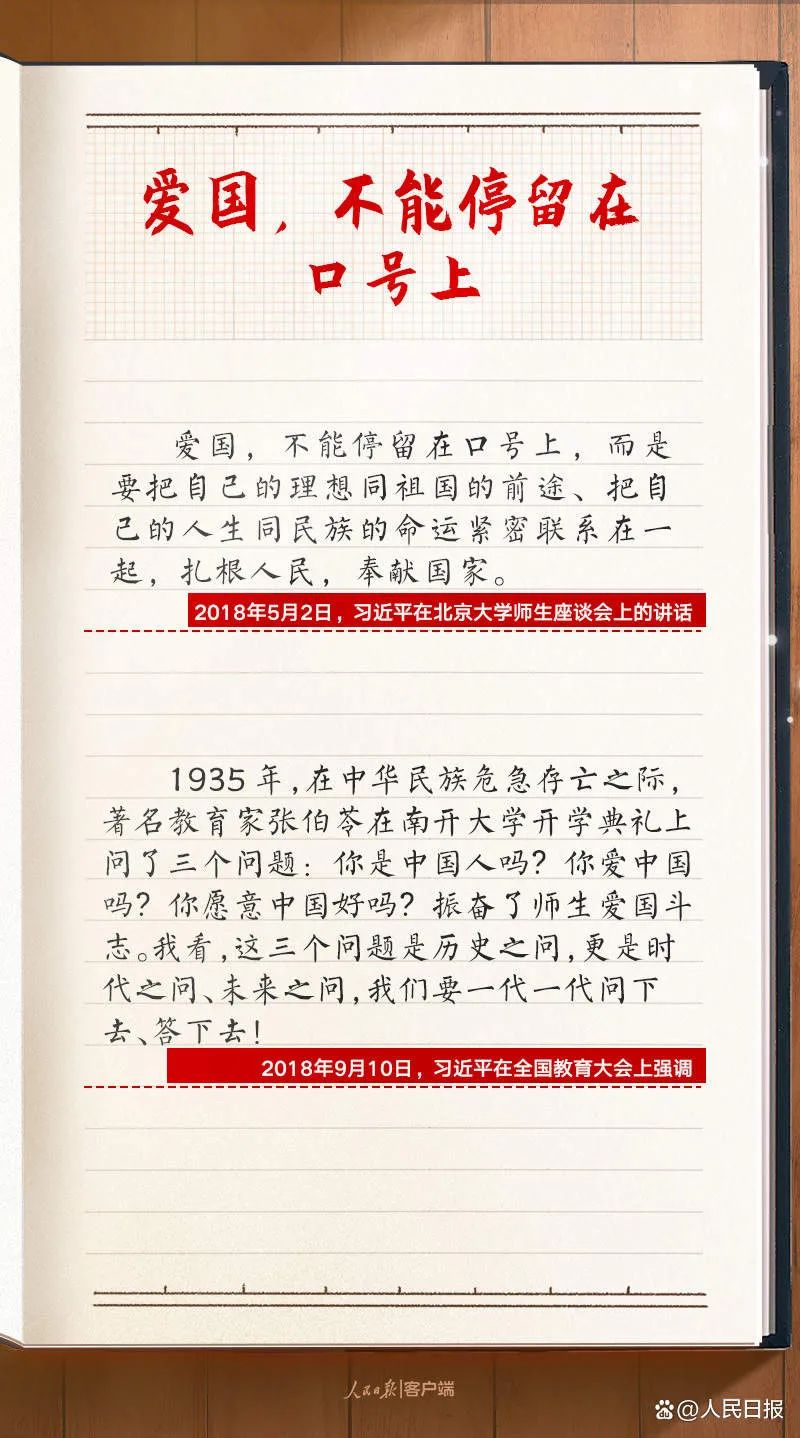 爱国，不能停留在
口号上
爱国，不能停留在口号上，而是
要把自己的理想同祖国的前途、把自
己的人生同民族的命运紧密联系在一
起，扎根人民，奉献国家。
2018年5月2日，习近平在北京大学师生座谈会上的讲话
1935年，在中华民族危急存亡之际，
著名教育家张伯苓在南开大学开学典礼上
问了三个问题：你是中国人吗？你爱中国
吗？你愿意中国好吗？振奋了师生爱国斗
志。我看，这三个问题是历史之问，更是时
代之问、未来之问，我们要一代一代问下
去、答下去！
2018年9月10日，习近平在全国教育大会上强调
人民日报|客户端
@人民日报